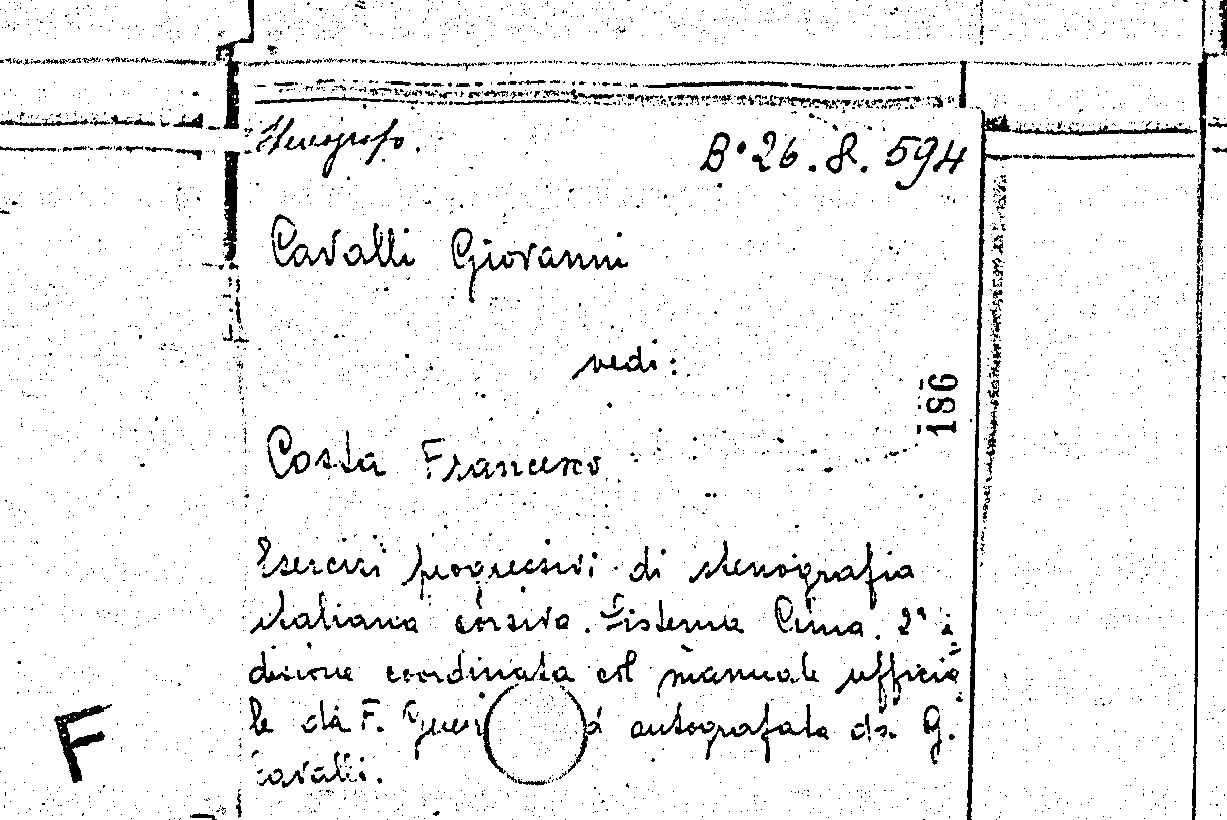 Stenografo.
B° 26. 8. 594
Cavalli Giovanni
vedi:
186
Costa Francesco
Esercizi progressivi di stenografia
italiana corsiva. Sistema Cima. 2ª e
dizione coordinata col manuale ufficia
le da F. ed autografata da G.
Cavalli.
F